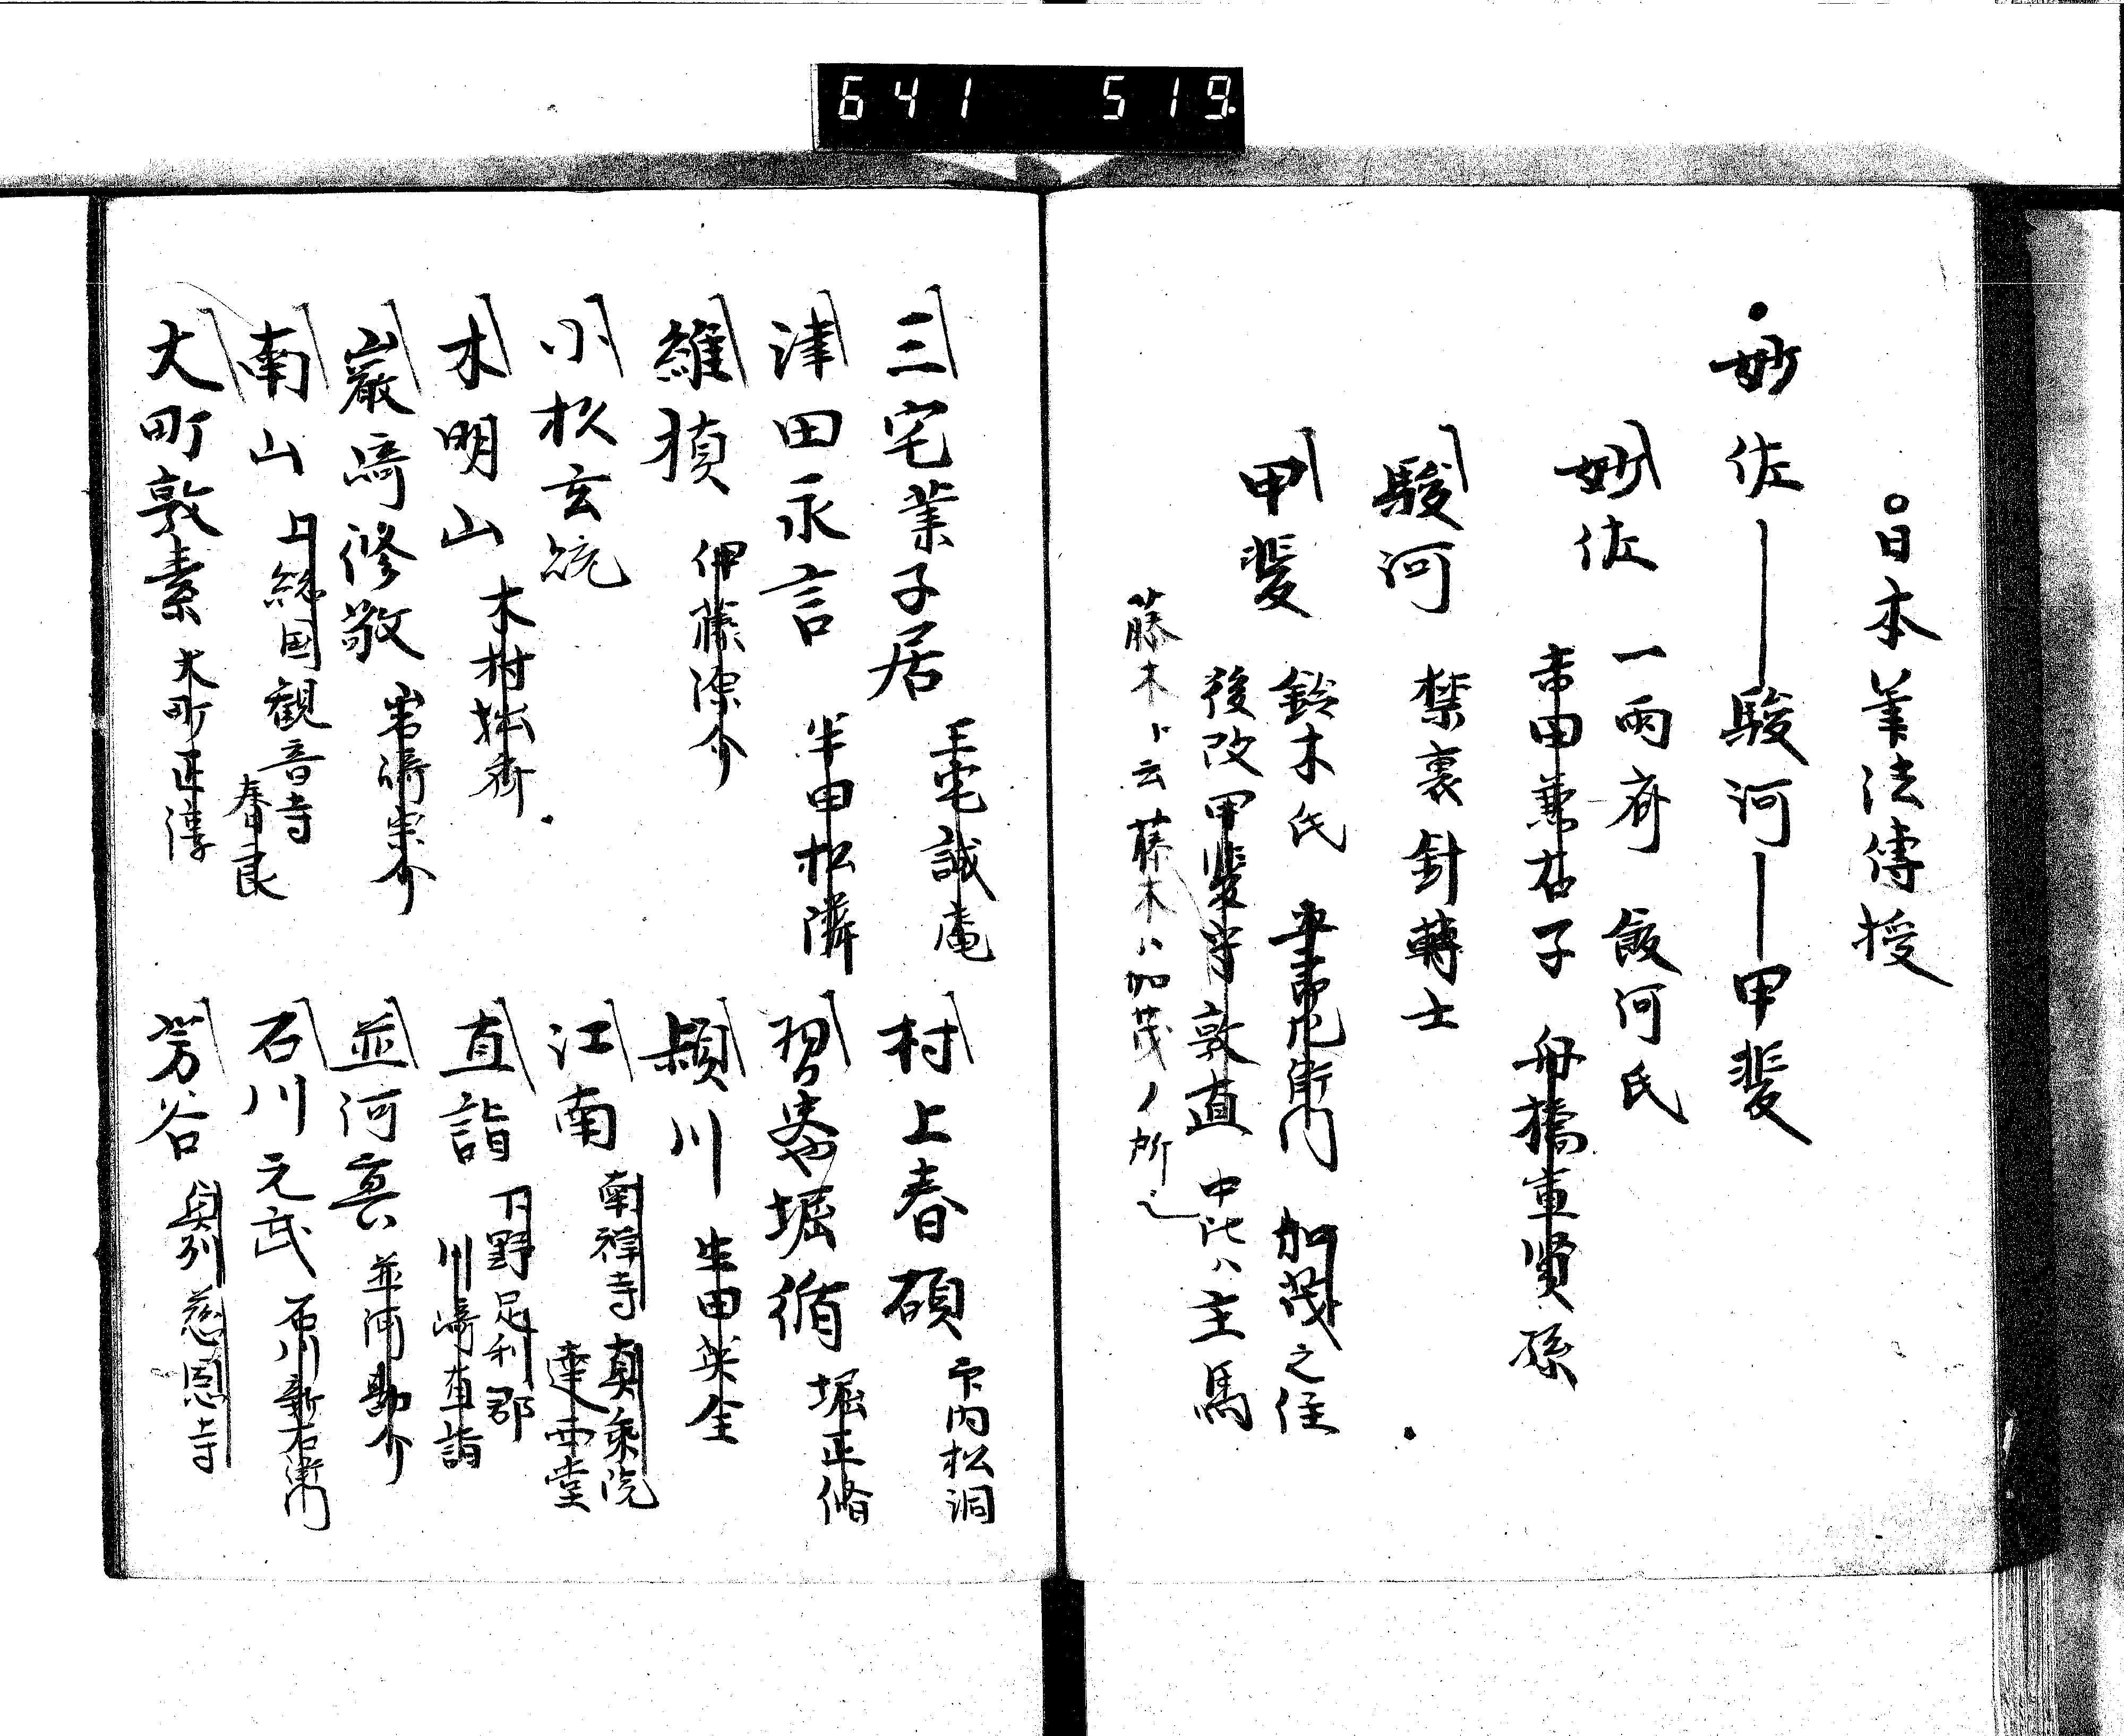 641 519
○日本筆法傳授
・妙佐――駿河―甲斐
妙佐 一雨齋 飯河氏
吉田兼右子 舟橋重賢孫
駿河 禁裏針轉士
甲斐 鈴木氏 加茂之住
後改甲斐守敦直 中比ハ主馬
藤木ト云藤木ハ加茂ノ所也
三宅業子居 三宅誠庵
津田永言 半田松隣
維禎 伊藤源介
小杉玄統
木明山 木村拙齋
巖﨑修敬
南山 上総国観音寺
春良
大町敦素 大町正淳
村上春碩 竹内松洞
習堀循 堀正脩
頴川 生田英全
江南 南禅寺真乗院
達西堂
直諧 下野足利郡
川﨑直諧
並河亮 並河勘介
石川元武 石川新右衛門
芳谷 奥列慈恩寺